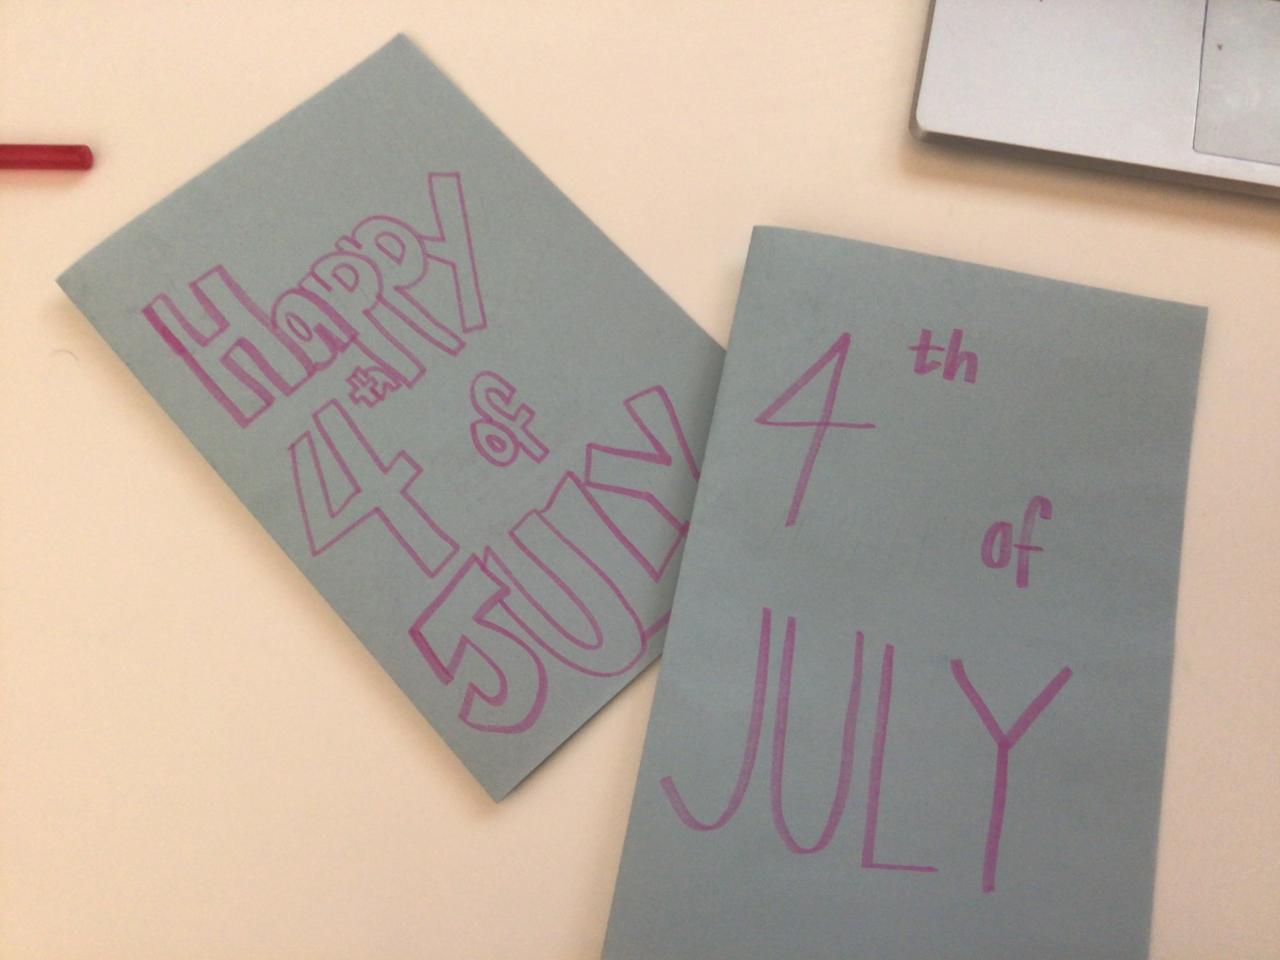 Happy
4th of
JULY
4th
of
JULY